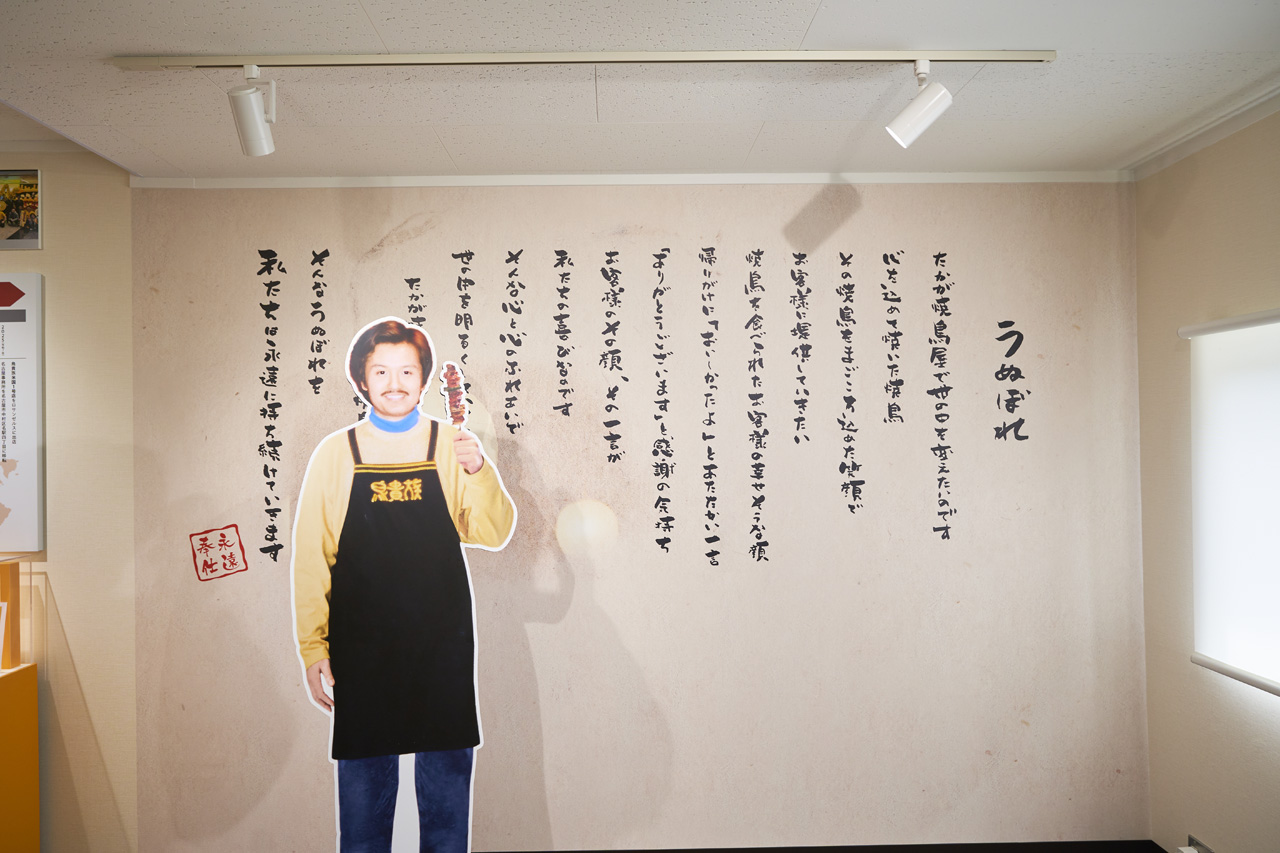 うぬぼれ
たかが焼鳥屋で世の中を変えたいのです
心を込めて焼いた焼鳥
その焼鳥もまごころ込めた笑顔で
お客様に提供していきたい
焼鳥を食べられたお客様の幸せそうな顔
帰りがけに「おいしかったよ」とあたたかい一言
「ありがとうございます」と、感謝の気持ち
お客様のその顔、その一言が
私たちの喜びなのです
そんな心と心のふれあいで
世の中を明るく
たかが
そんなうぬぼれを
私たちは永遠に持ち続けていきます
永遠
奉仕
鳥貴族